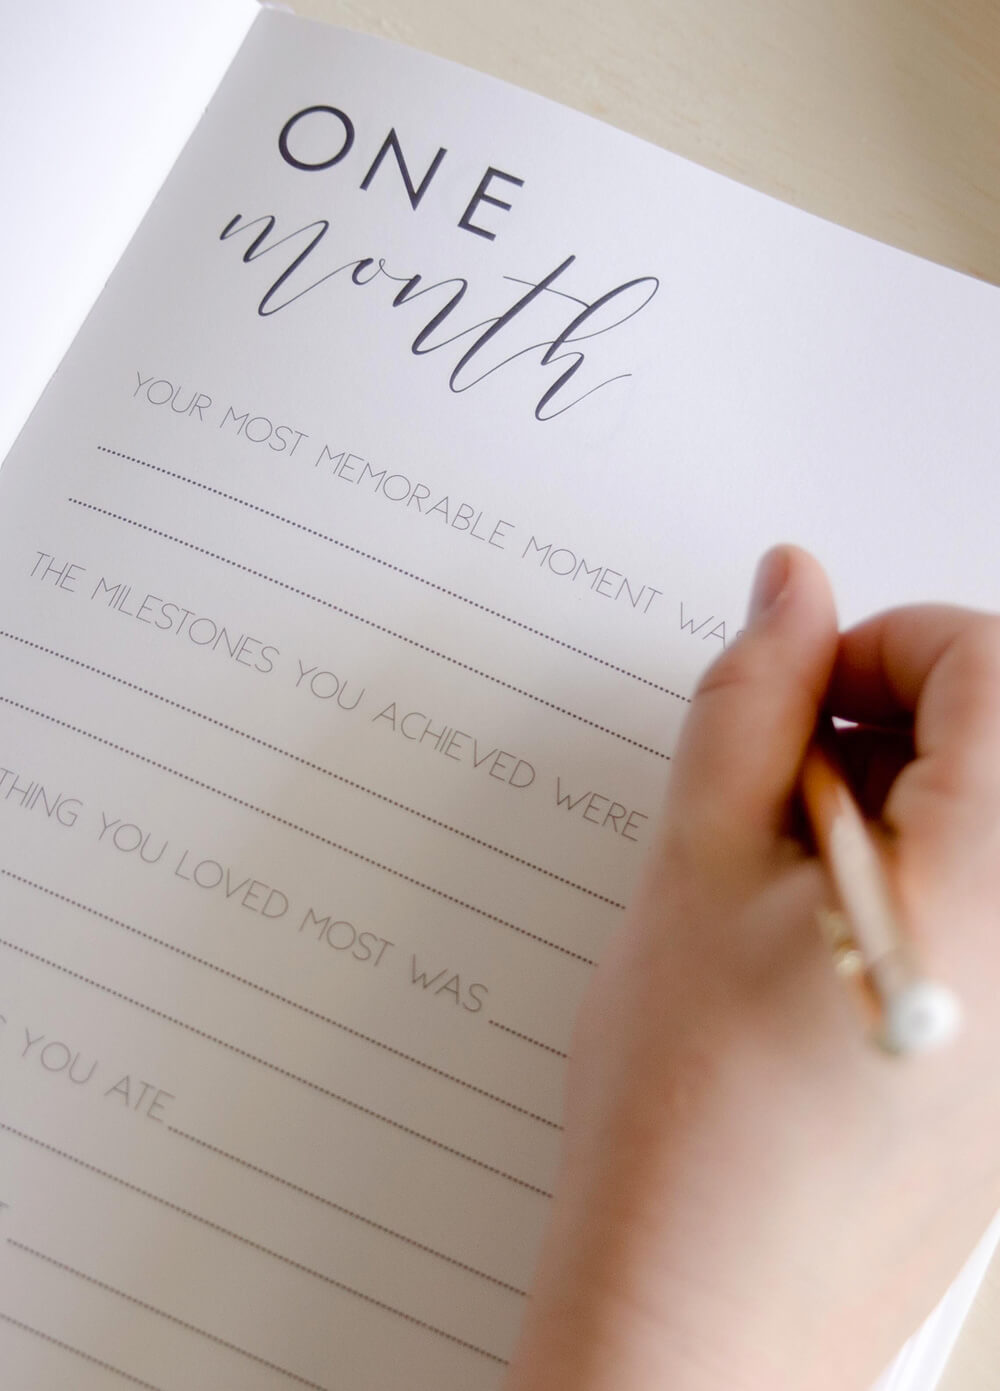 ONE
month
YOUR MOST MEMORABLE MOMENT WAS
THE MILESTONES YOU ACHIEVED WERE
THING YOU LOVED MOST WAS
YOU ATE